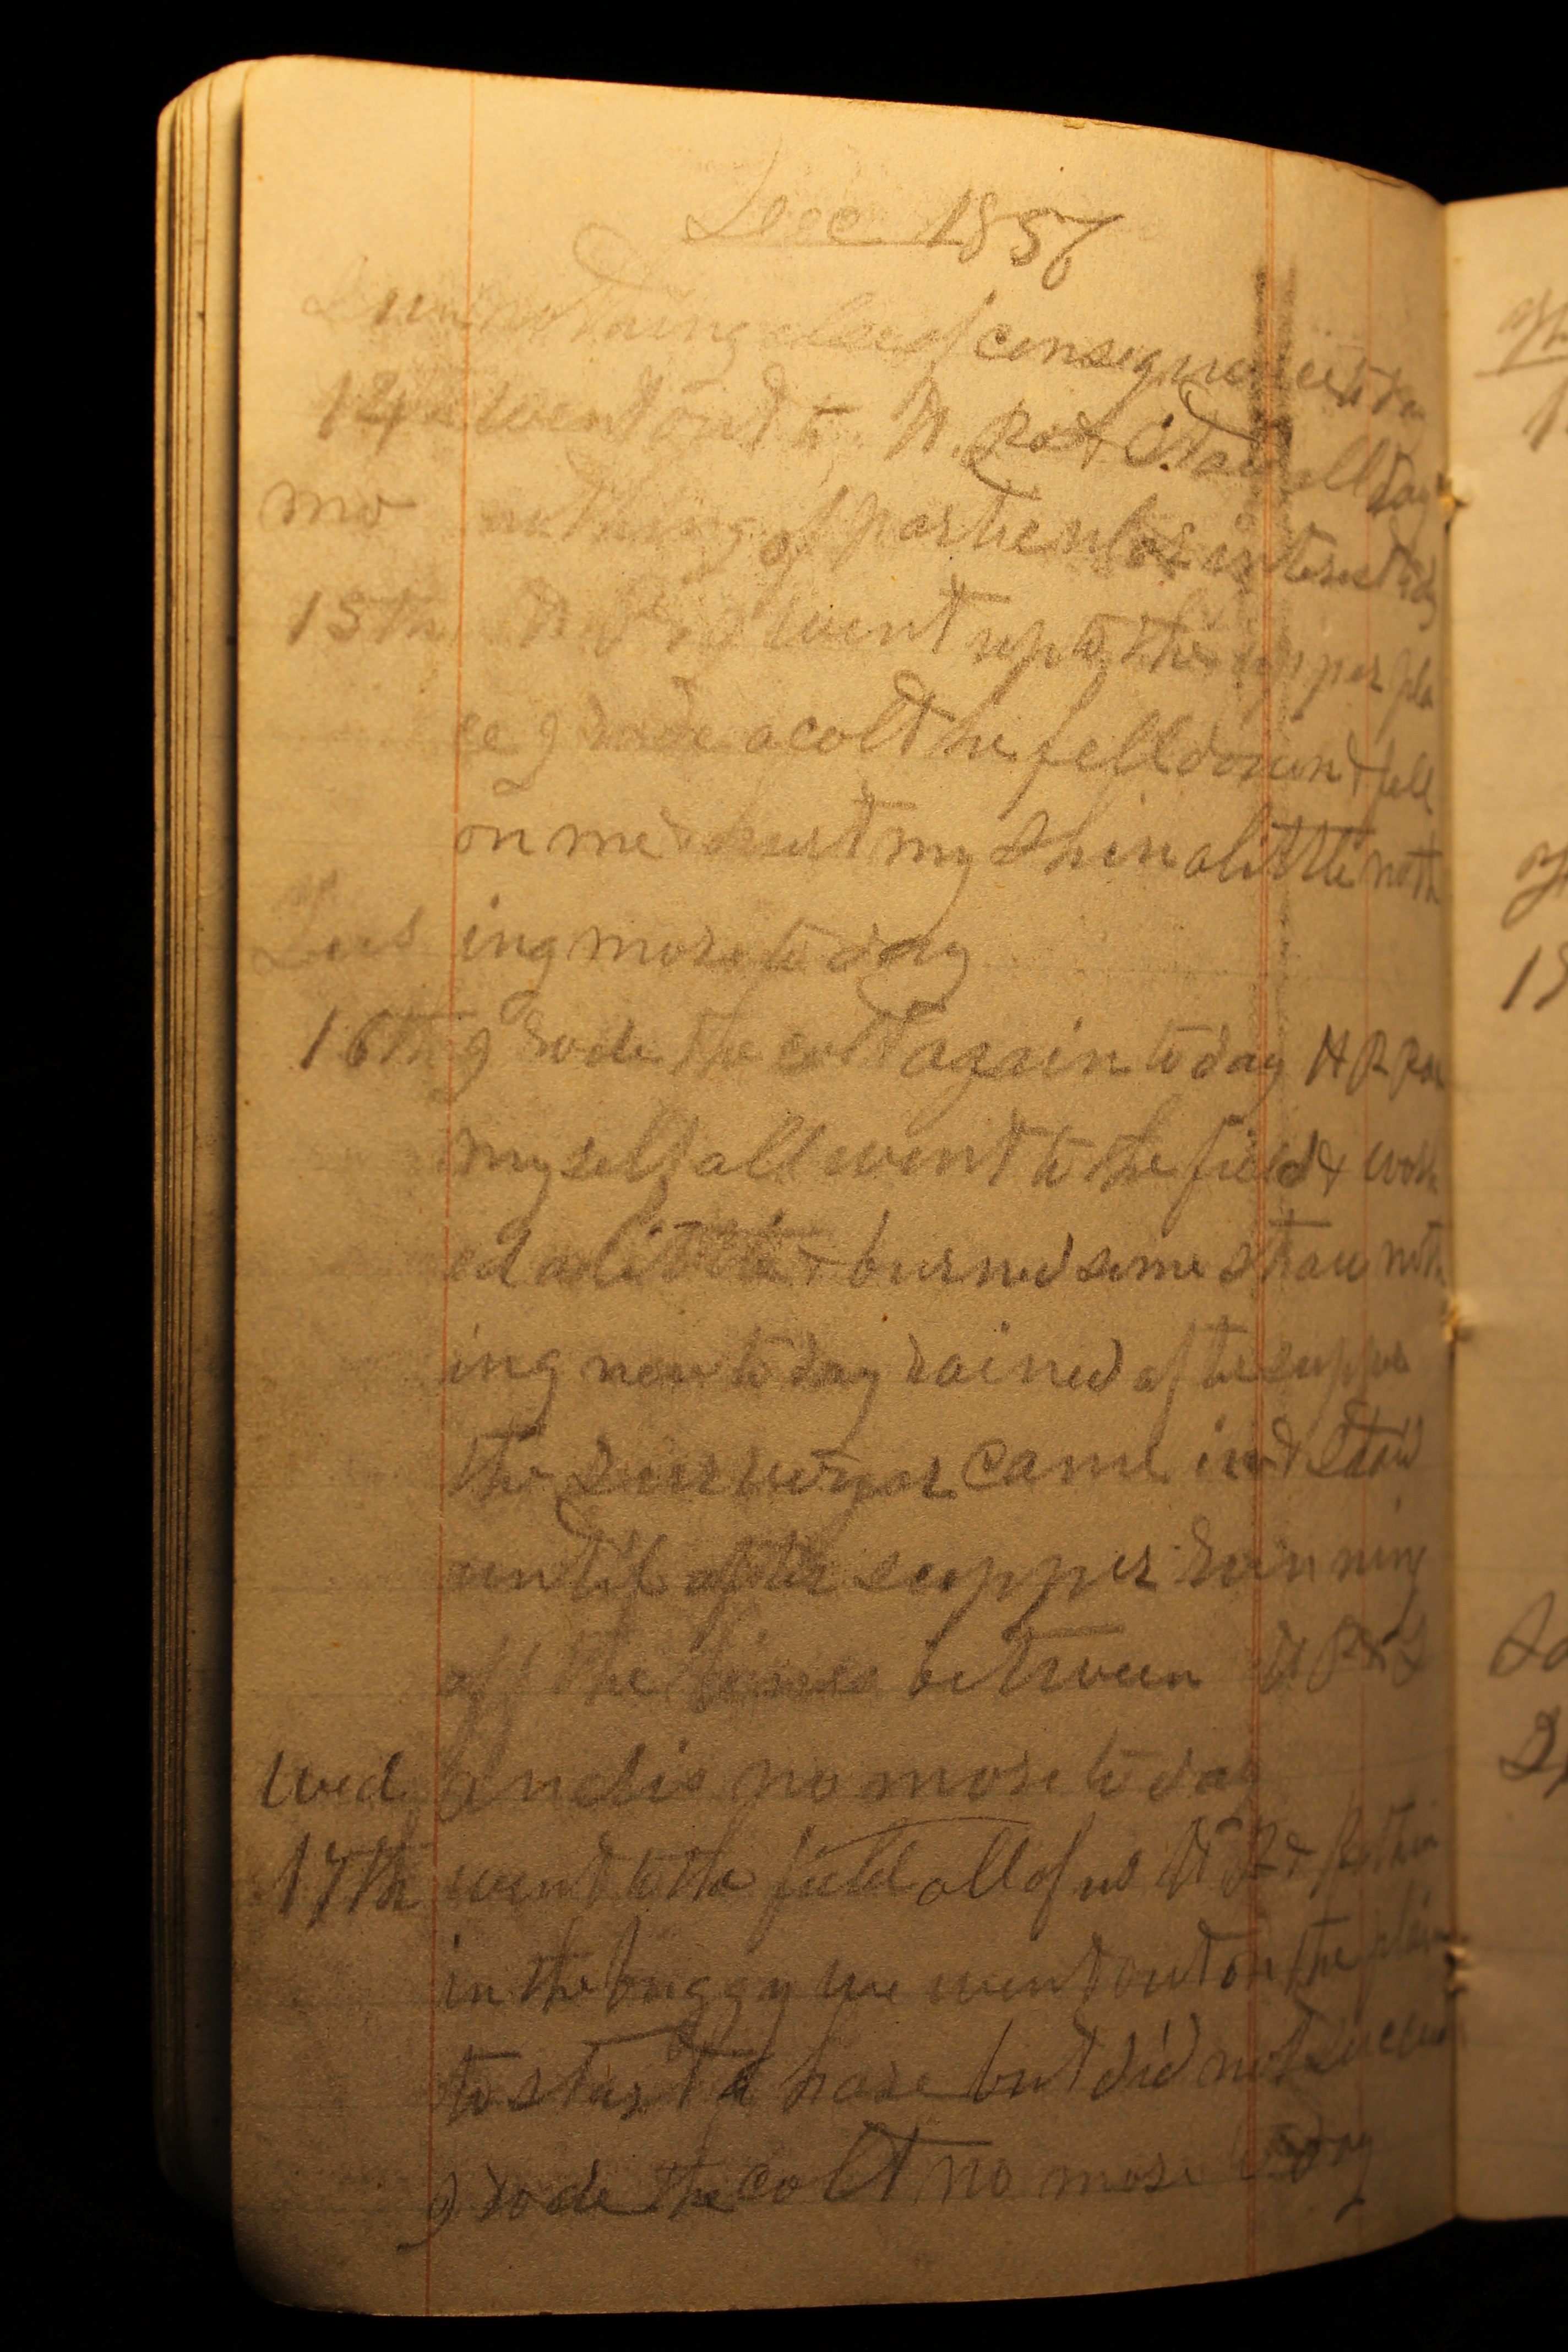 Dec 1856
Sun nothing else of consequence to day
14th went out to N. R & Staid all day
mo nothing of particular interest to day
15th went up to the upper pla
ce I rode a colt he fell down & fell
on me & hurt my Shin a little noth
Tues ing more to day
16th I rode the colt again to day H R
my self all went to the field & work
ed a little & burned some straw noth
ing new to day rained after supper
the Surveyor came in & Staid
until after supper running
off the lines between H R & L
Wed Landis no more to day
17th went to the field all of us H R &
in the buggy we went out on the plain
to start a hare but did not succeed
I rode the colt no more to day